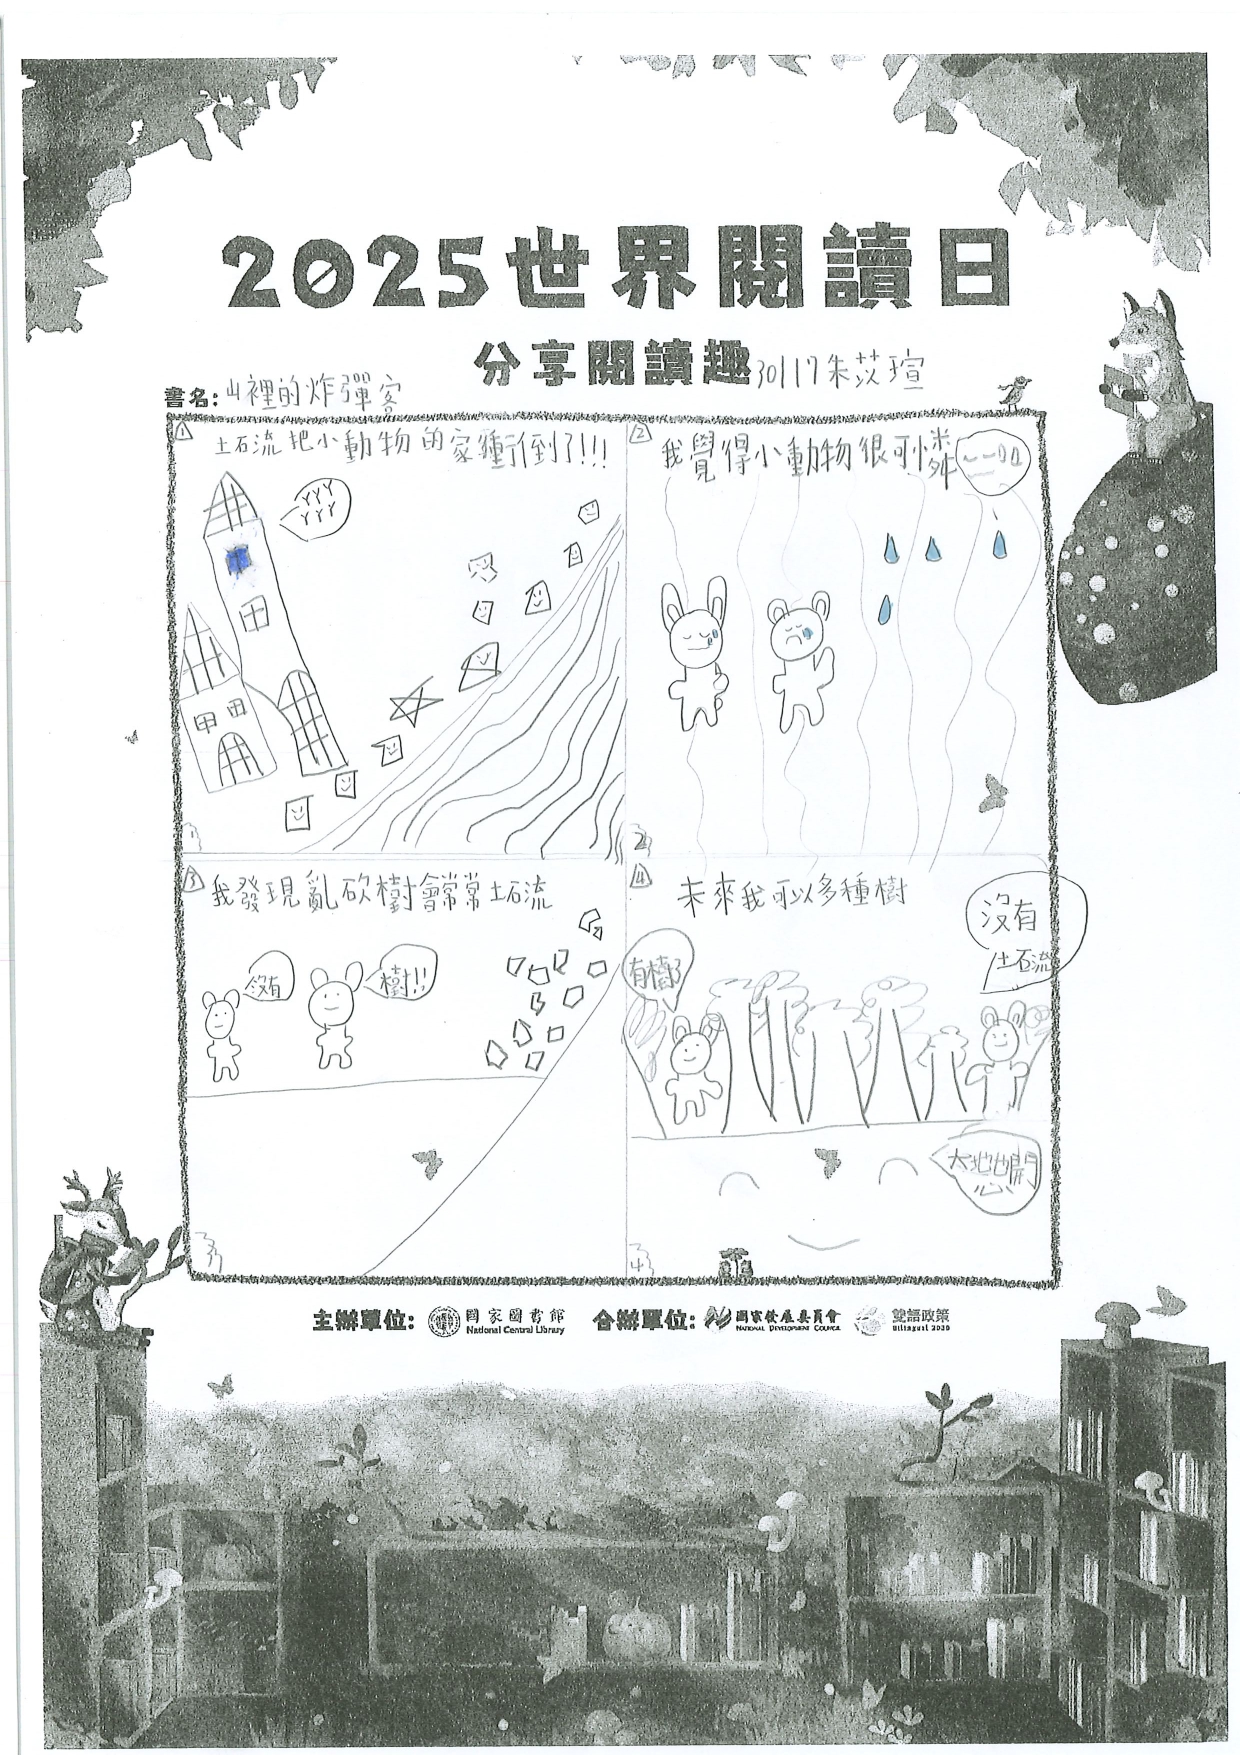 2025世界閱讀日
分享閱讀趣
30117朱苡瑄
書名:山裡的炸彈客
1
土石流把小動物的家衝倒了!!!
YYY
YYY
2
我覺得小動物很可憐
3
我發現亂砍樹會常常土石流
沒有
樹!!
4
未來我可以多種樹
沒有
土石流
有樹了
大地他開
心
主辦單位: 國家圖書館
National Central Library
合辦單位: 國家發展委員會
NATIONAL DEVELOPMENT COUNCIL
雙語政策
Bilingual 2030